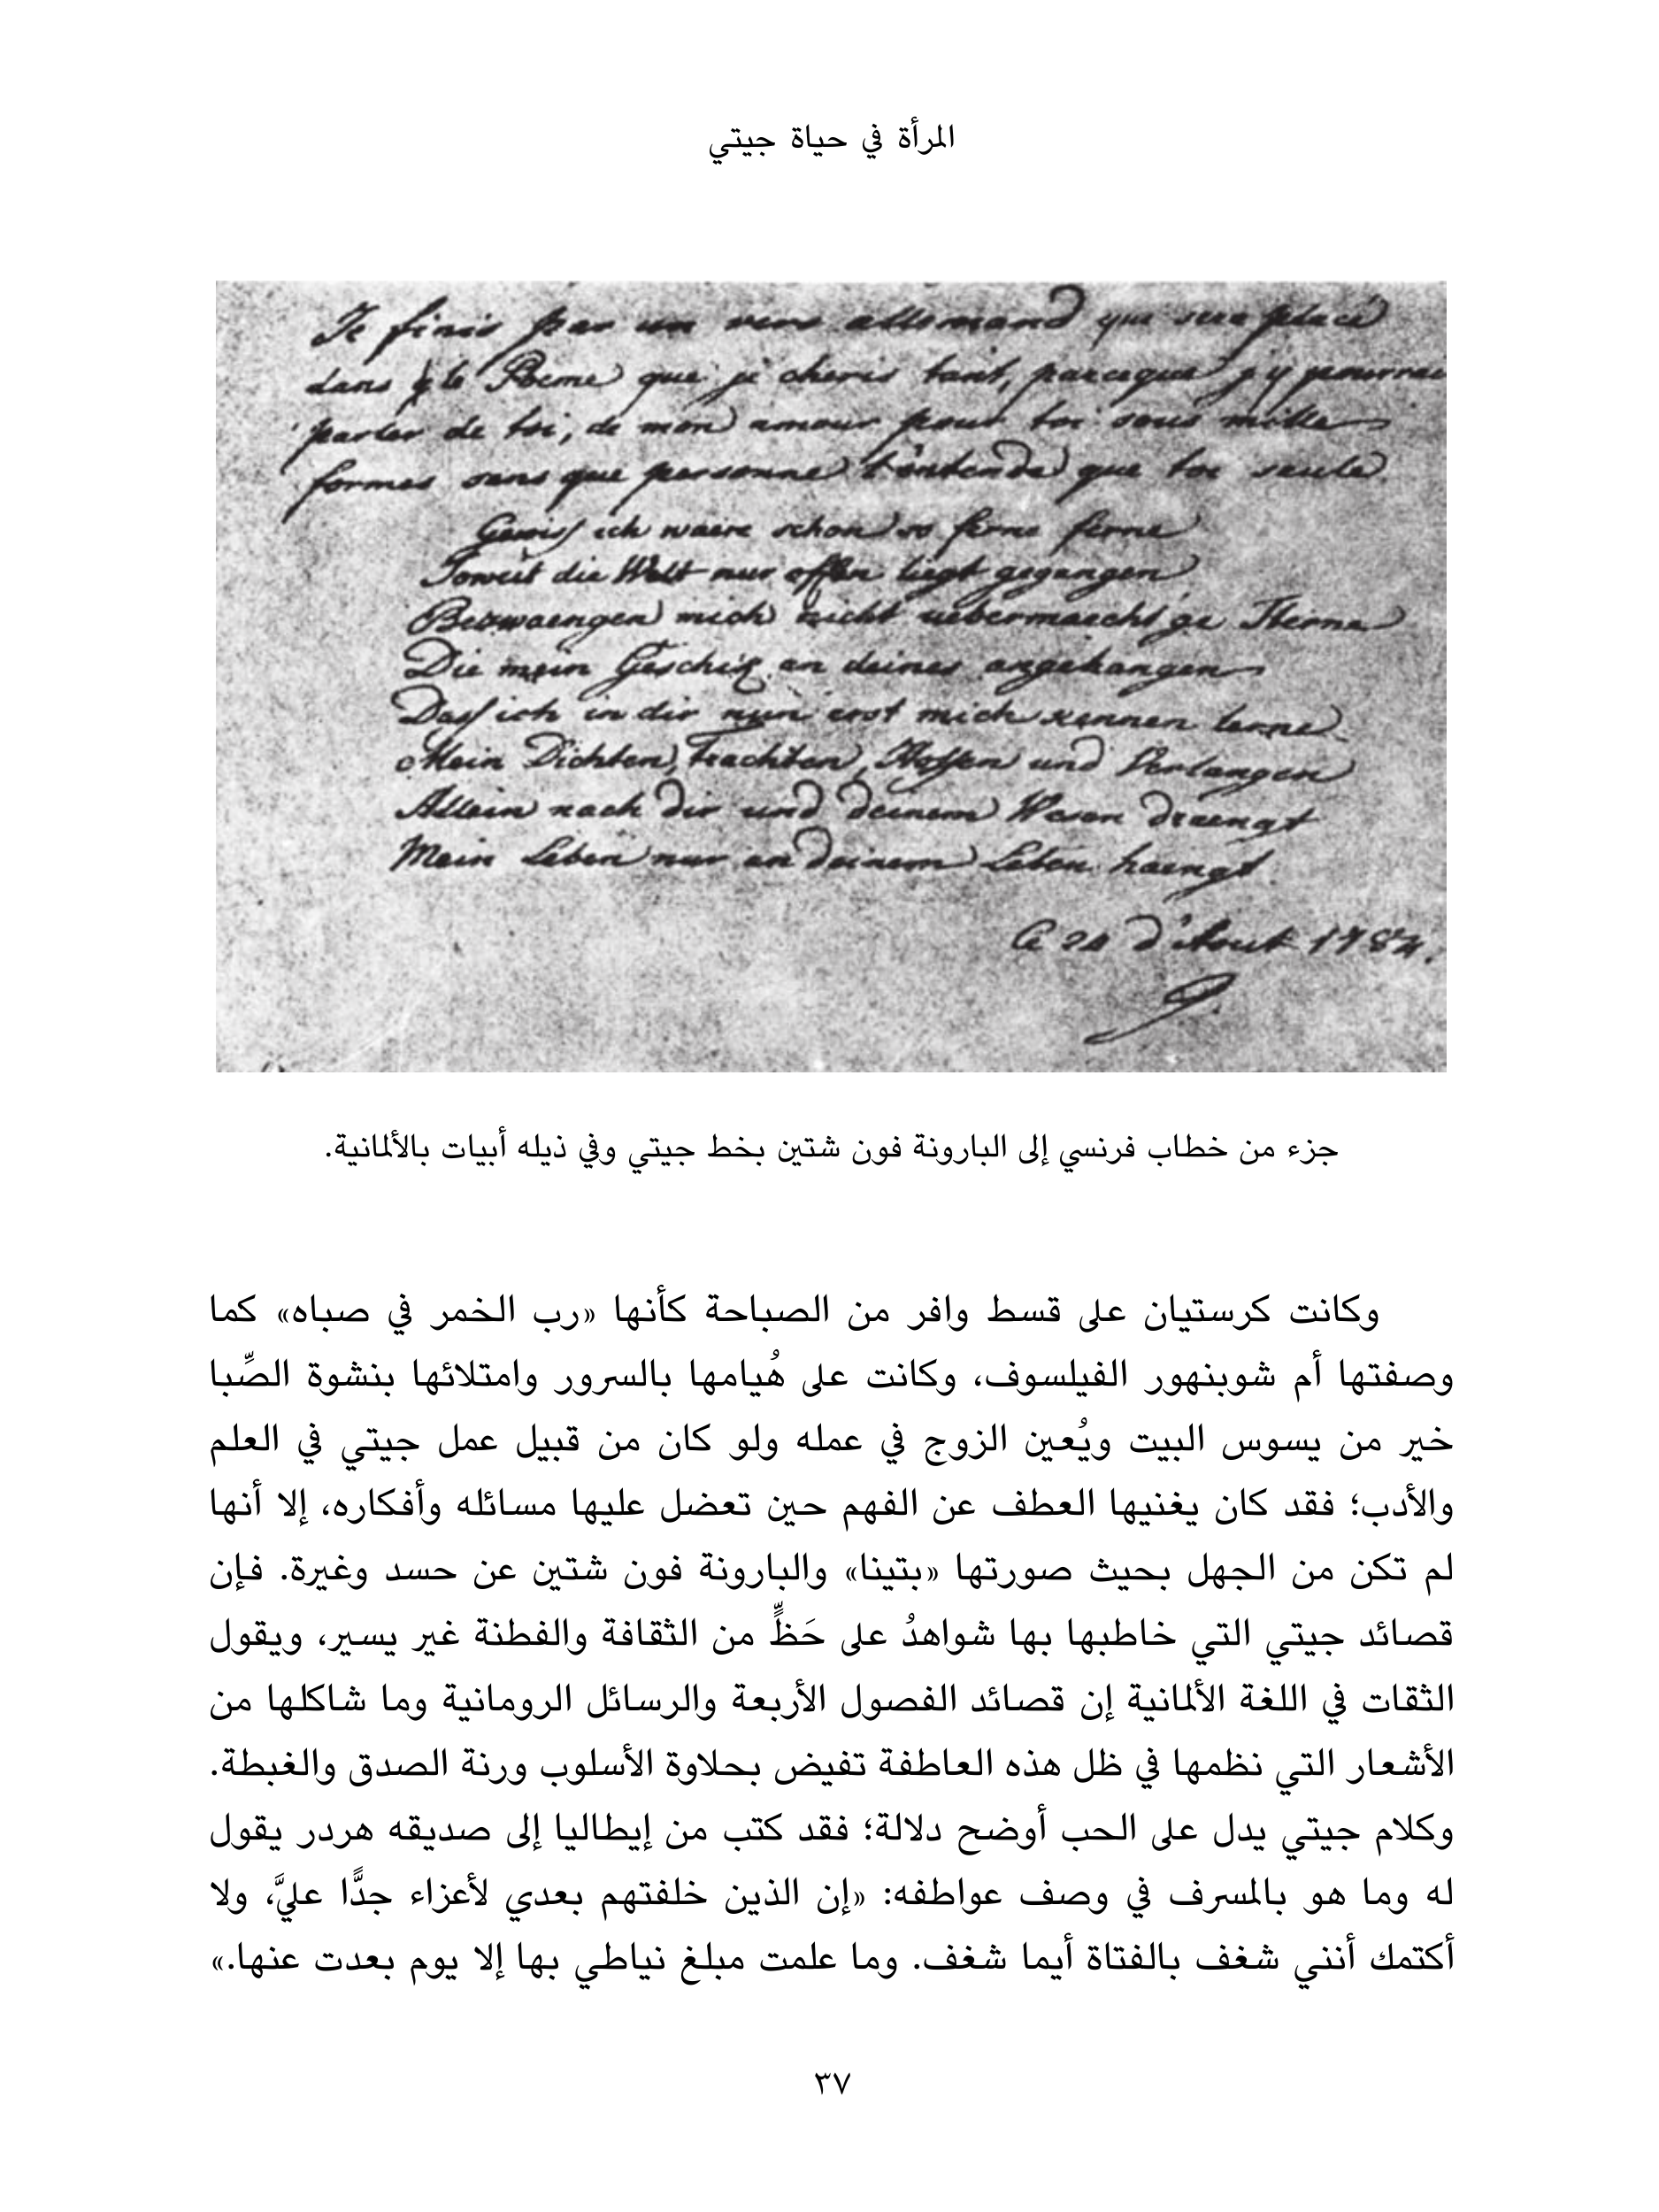 المرأة في حياة جيتي
Je finis par un vers allemand qui sera placé
dans le Poeme que je cheris tant, parceque j'y pourrai
parler de toi, de mon amour pour toi sous mille
formes sans que personne l'entende que toi seule.
Gewiss ich waere schon so ferne ferne
Soweit die Welt nur offen liegt gegangen
Bezwaengen mich nicht uebermaecht'ge Sterne
Die mein Geschick an deines angehangen
Dass ich in dir nun erst mich kennen lerne
Mein Dichten, Trachten, Hoffen und Verlangen
Allein nach dir und deinem Wesen draengt
Mein Leben nur an deinem Leben haengt
Ce 24 d'Aout 1784.
جزء من خطاب فرنسي إلى البارونة فون شتين بخط جيتي وفي ذيله أبيات بالألمانية.
وكانت كرستيان على قسط وافر من الصباحة كأنها «رب الخمر في صباه» كما
وصفتها أم شوبنهور الفيلسوف، وكانت على هُيامها بالسرور وامتلائها بنشوة الصِّبا
خير من يسوس البيت ويُعين الزوج في عمله ولو كان من قبيل عمل جيتي في العلم
والأدب؛ فقد كان يغنيها العطف عن الفهم حين تعضل عليها مسائله وأفكاره، إلا أنها
لم تكن من الجهل بحيث صورتها «بتينا» والبارونة فون شتين عن حسد وغيرة. فإن
قصائد جيتي التي خاطبها بها شواهدُ على حَظٍّ من الثقافة والفطنة غير يسير، ويقول
الثقات في اللغة الألمانية إن قصائد الفصول الأربعة والرسائل الرومانية وما شاكلها من
الأشعار التي نظمها في ظل هذه العاطفة تفيض بحلاوة الأسلوب ورنة الصدق والغبطة.
وكلام جيتي يدل على الحب أوضح دلالة؛ فقد كتب من إيطاليا إلى صديقه هردر يقول
له وما هو بالمسرف في وصف عواطفه: «إن الذين خلفتهم بعدي لأعزاء جدًّا عليَّ، ولا
أكتمك أنني شغف بالفتاة أيما شغف. وما علمت مبلغ نياطي بها إلا يوم بعدت عنها.»
٣٧